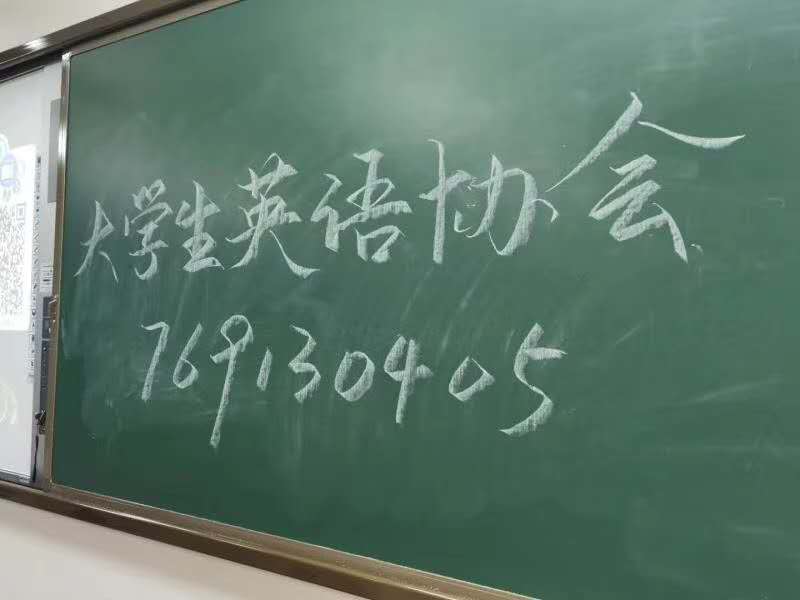 大学生英语协会
769130405